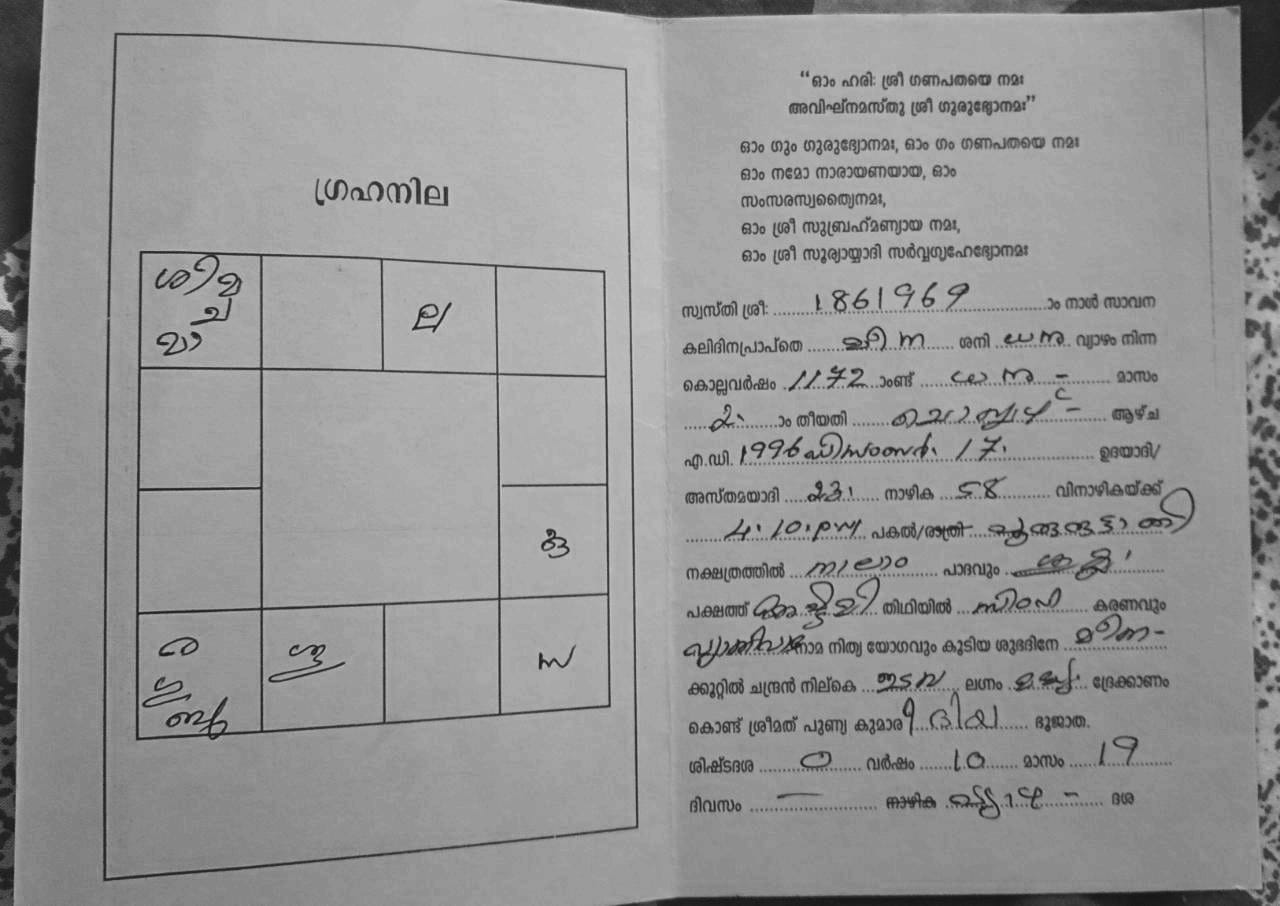 ഗ്രഹനില
ശി
ച
മാ
ല
കു
ര
ഗു
ബു
ശു
സ
“ഓം ഹരിഃ ശ്രീ ഗണപതയെ നമഃ
അവിഘ്നമസ്തു ശ്രീ ഗുരുഭ്യോനമഃ”
ഓം ഗും ഗുരുഭ്യോനമഃ, ഓം ഗം ഗണപതയെ നമഃ
ഓം നമോ നാരായണയായ, ഓം
സംസരസ്വത്യൈനമഃ,
ഓം ശ്രീ സുബ്രഹ്മണ്യായ നമഃ,
ഓം ശ്രീ സൂര്യായ്യാദി സർവ്വഗ്യഹേഭ്യോനമഃ
സ്വസ്തി ശ്രീഃ 1861969 ാം നാൾ സാവന
കലിദിനപ്രാപ്തെ മീന ശനി ധനു വ്യാഴം നിന്ന
കൊല്ലവർഷം 1172 ാംണ്ട് ധനു - മാസം
2 ാം തീയതി ചൊവ്വാഴ്ച - ആഴ്ച
എ.ഡി. 1996 ഡിസംബർ 17 ഉദയാദി/
അസ്തമയാദി 23 നാഴിക 58 വിനാഴികയ്ക്ക്
4.10.pm പകൽ/രാത്രി പൂരുരുട്ടാതി
നക്ഷത്രത്തിൽ നാലാം പാദവും
പക്ഷത്ത് അഷ്ടമി തിഥിയിൽ സിംഹ കരണവും
നാമ നിത്യ യോഗവും കൂടിയ ശുഭദിനേ മീന -
ക്കൂറ്റിൽ ചന്ദ്രൻ നില്കെ ഇടവ ലഗ്നം മദ്ധ്യ ദ്രേക്കാണം
കൊണ്ട് ശ്രീമത് പുണ്യ കുമാരി ദിയ ഭൂജാത.
ശിഷ്ടദശ 0 വർഷം 10 മാസം 19
ദിവസം — നാഴിക വ്യാഴ - ദശ